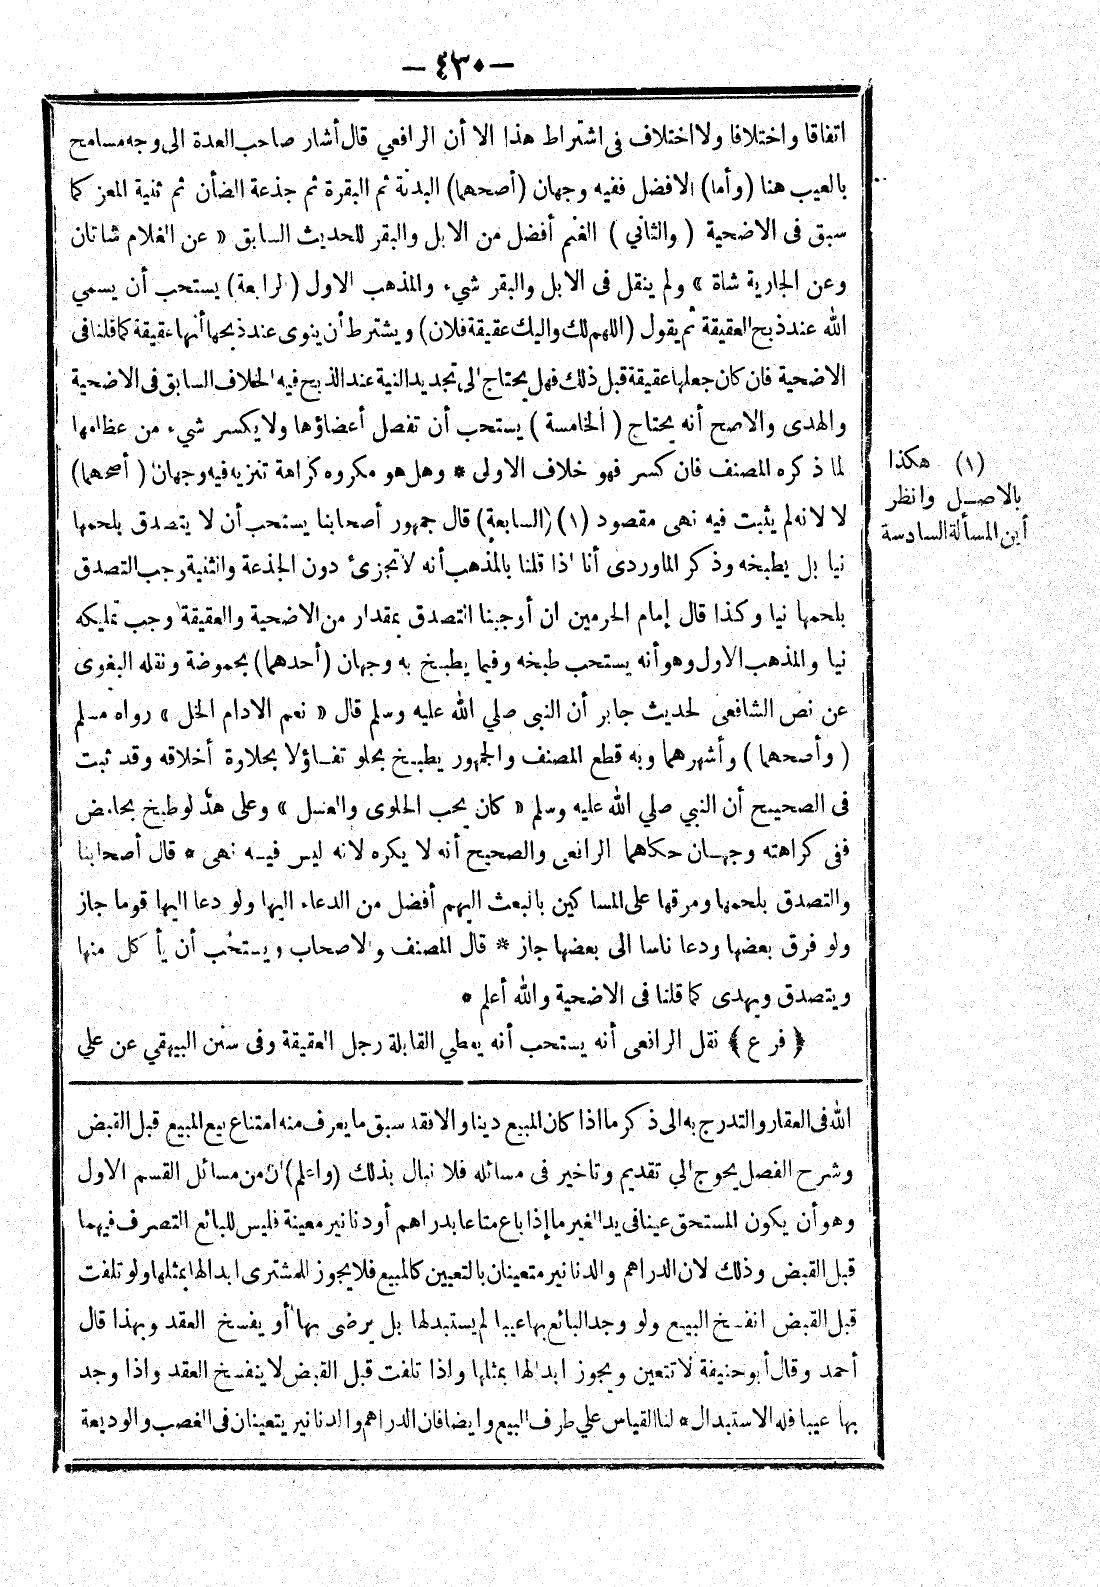 — ٤٣٠ —
اتفاقا واختلافا ولا اختلاف فى اشتراط هذا الا أن الرافعي قال أشار صاحب العدة الى وجه مسامح
بالعيب هنا (وأما) الافضل ففيه وجهان (أصحهما) البدنة ثم البقرة ثم جذعة الضأن ثم ثنية المعز كما
سبق فى الاضحية ( والثاني ) الغنم أفضل من الابل والبقر للحديث السابق « عن الغلام شاتان
وعن الجارية شاة » ولم ينقل فى الابل والبقر شيء والمذهب الاول (الرابعة) يستحب أن يسمي
الله عند ذبح العقيقة ثم يقول (اللهم لك واليك عقيقة فلان) ويشترط أن ينوى عند ذبحها أنها عقيقة كما قلنا فى
الاضحية فان كان جعلها عقيقة قبل ذلك فهل يحتاج الى تجديد النية عند الذبح فيه الخلاف السابق فى الاضحية
والهدى والاصح أنه يحتاج ( الخامسة ) يستحب أن تفصل أعضاؤها ولا يكسر شيء من عظامها
لما ذكره المصنف فان كسر فهو خلاف الاولى * وهل هو مكروه كراهة تنزيه فيه وجهان ( أصحهما)
لا لانه لم يثبت فيه نهى مقصود (١) (السابعة) قال جمهور أصحابنا يستحب أن لا يتصدق بلحمها
نيا بل يطبخه وذكر الماوردى أنا اذا قلنا بالمذهب أنه لا تجزئ دون الجذعة والثنية وجب التصدق
بلحمها نيا وكذا قال إمام الحرمين ان أوجبنا التصدق بمقدار من الاضحية والعقيقة وجب تمليكه
نيا والمذهب الاول وهو أنه يستحب طبخه وفيما يطبخ به وجهان (أحدهما) بحموضة ونقله البغوى
عن نص الشافعى لحديث جابر أن النبى صلي الله عليه وسلم قال « نعم الادام الخل » رواه مسلم
( وأصحهما ) وأشهرهما وبه قطع المصنف والجمهور يطبخ بحلو تفاؤلا بحلاوة أخلاقه وقد ثبت
فى الصحيح أن النبي صلي الله عليه وسلم « كان يحب الحلوى والعسل » وعلى هذا لو طبخ بحامض
ففى كراهته وجهان حكاهما الرافعى والصحيح أنه لا يكره لانه ليس فيه نهى * قال أصحابنا
والتصدق بلحمها ومرقها على المساكين بالبعث اليهم أفضل من الدعاء اليها ولو دعا اليها قوما جاز
ولو فرق بعضها ودعا ناسا الى بعضها جاز * قال المصنف والاصحاب ويستحب أن يأكل منها
ويتصدق ويهدى كما قلنا فى الاضحية والله أعلم *
﴿ فرع ﴾ نقل الرافعى أنه يستحب أنه يعطي القابلة رجل العقيقة وفى سنن البيهقي عن علي
(١) هكذا
بالاصل وانظر
أين المسألة السادسة
الله فى العقار والتدرج به الى ذكر ما اذا كان المبيع دينا والا فقد سبق ما يعرف منه امتناع بيع المبيع قبل القبض
وشرح الفصل يحوج الي تقديم وتاخير فى مسائله فلا نبال بذلك (واعلم) ان من مسائل القسم الاول
وهو أن يكون المستحق عينا فى يد الغير ما إذا باع متاعا بدراهم أو دنانير معينة فليس للبائع التصرف فيهما
قبل القبض وذلك لان الدراهم والدنانير متعينان بالتعيين كالمبيع فلا يجوز للمشترى ابدالها بمثلها ولو تلفت
قبل القبض انفسخ البيع ولو وجد البائع بها عيبا لم يستبدلها بل يرضى بها أو يفسخ العقد وبهذا قال
أحمد وقال أبو حنيفة لا تتعين ويجوز ابدالها بمثلها واذا تلفت قبل القبض لا ينفسخ العقد واذا وجد
بها عيبا فله الاستبدال * لنا القياس علي طرف البيع وايضا فان الدراهم والدنانير يتعينان فى الغصب والوديعة